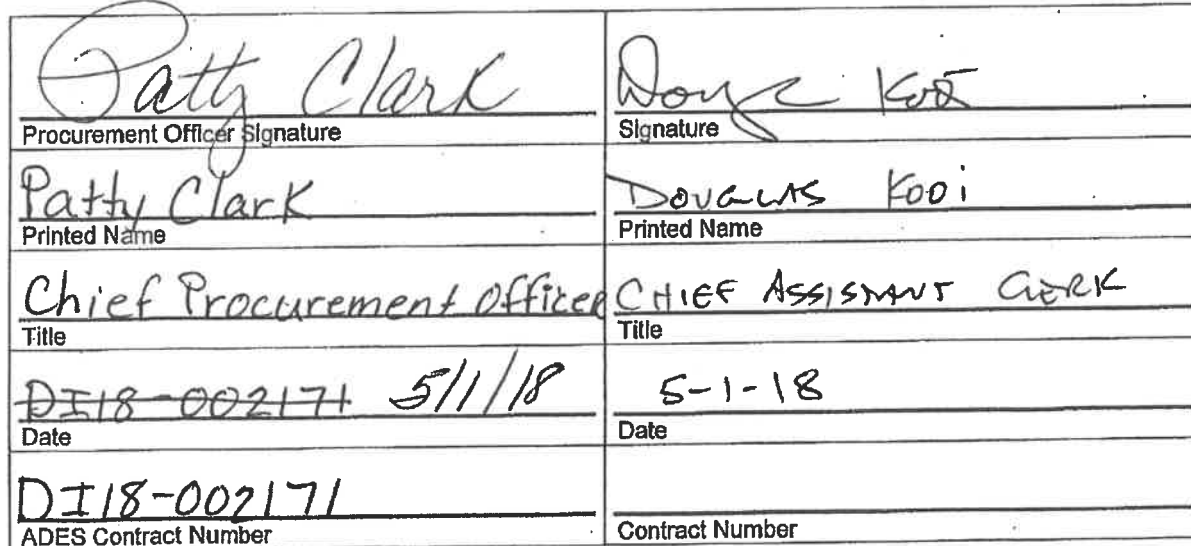 Patty Clark
Procurement Officer Signature
Patty Clark
Printed Name
Chief Procurement Officer
Title
DI18-002171 5/1/18
Date
DI18-002171
ADES Contract Number
Doug Kooi
Signature
DOUGLAS KOOi
Printed Name
CHIEF ASSISTANT CLERK
Title
5-1-18
Date
Contract Number